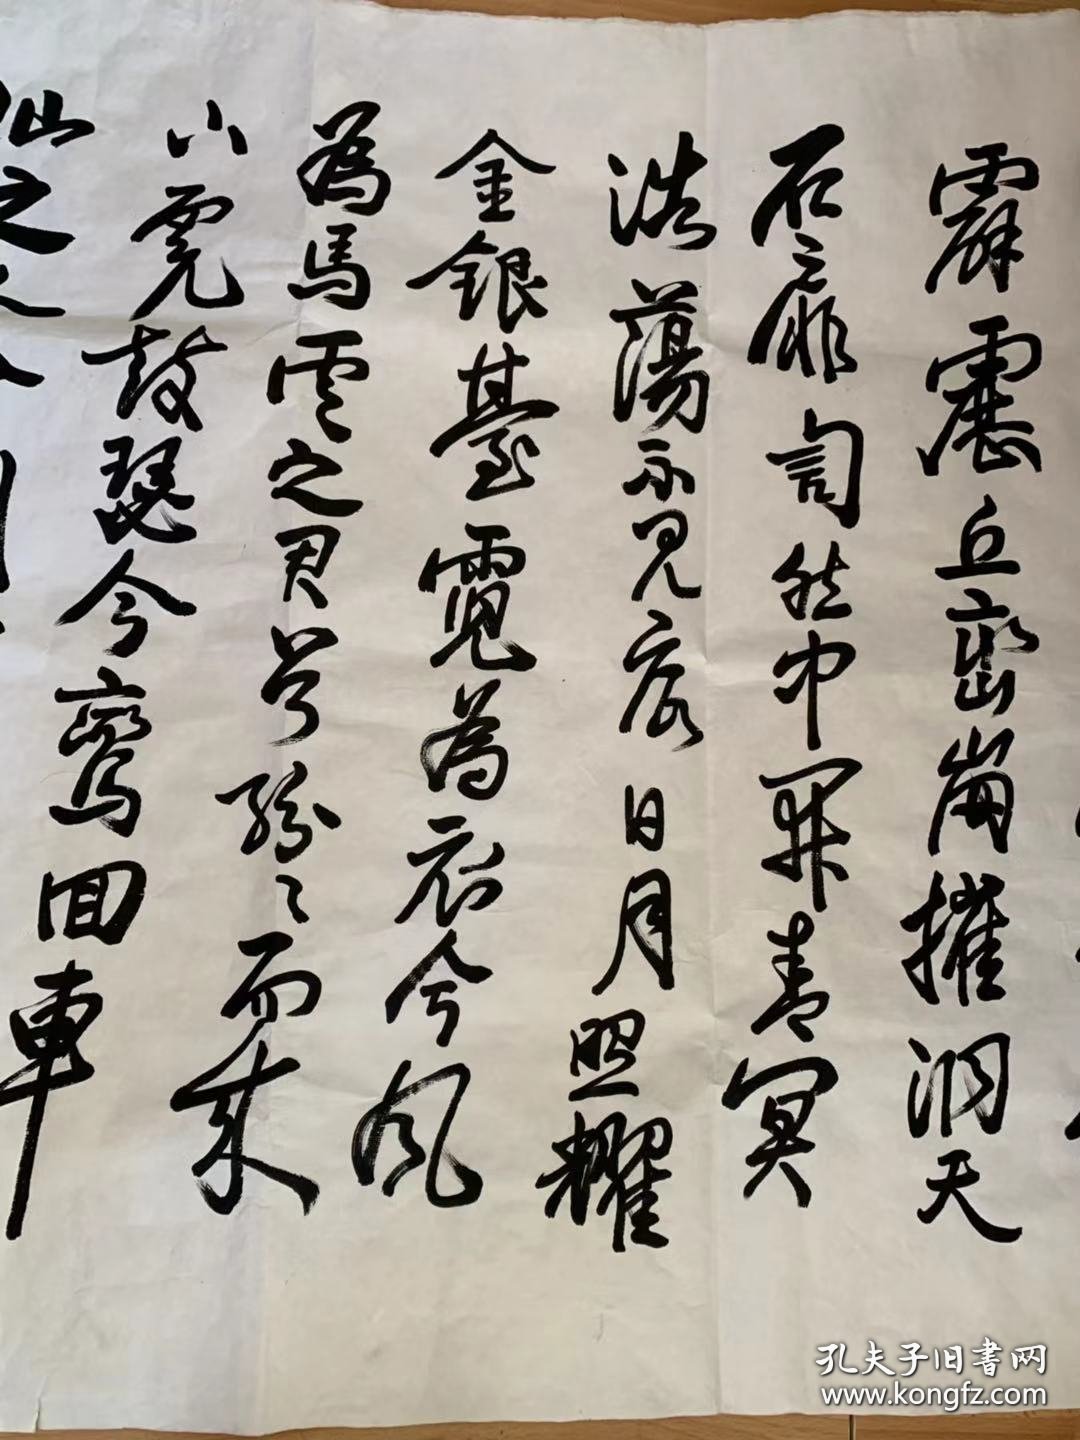 霹靂丘巒崩摧洞天
石扉訇然中開青冥
浩蕩不見底日月照耀
金銀臺霓為衣兮風
為馬雲之君兮紛々而來
下虎鼓瑟兮鸞回車
仙之
孔夫子旧書网
www.kongfz.com